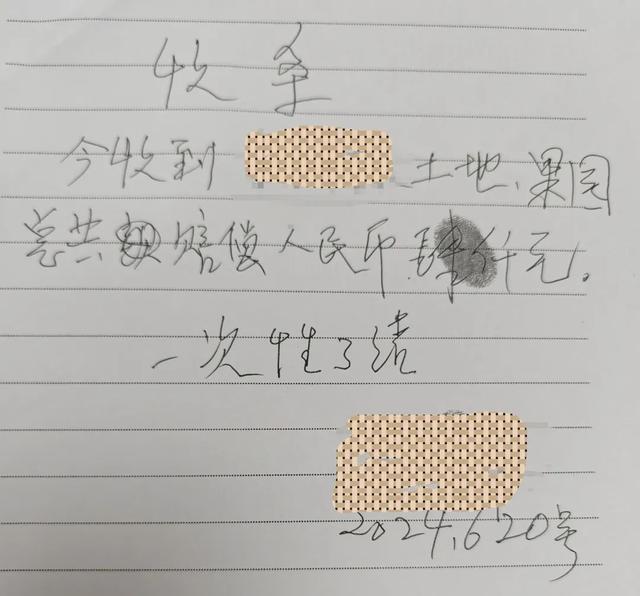 收条
今收到 土地、果园
总共赔偿人民币肆仟元。
一次性了结
2024.6 20号